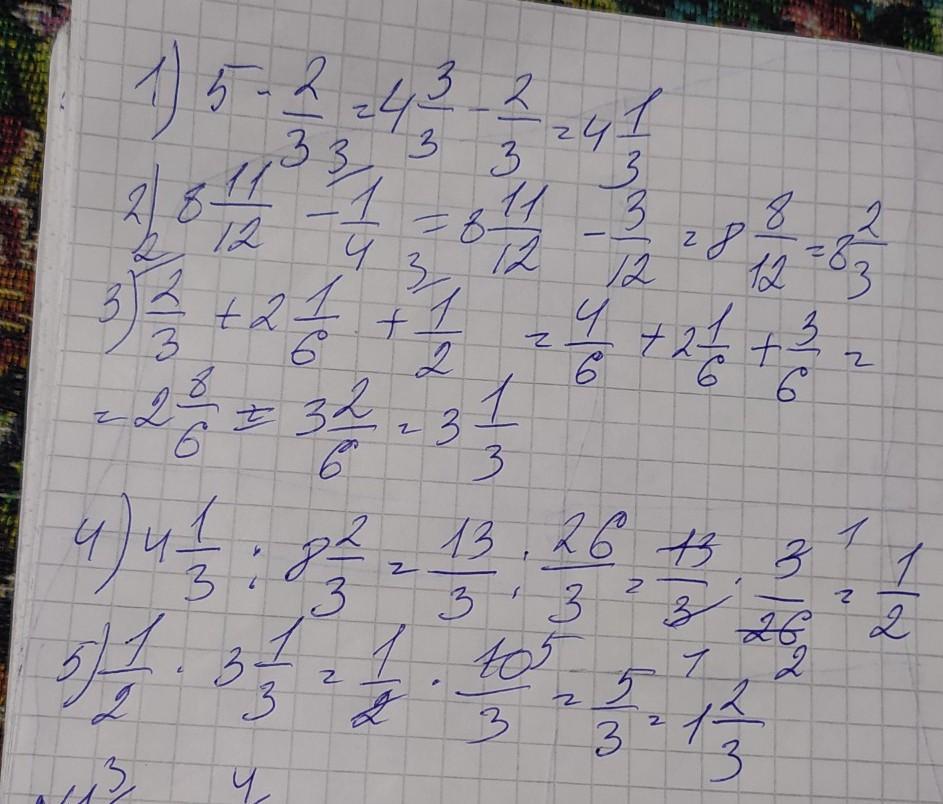 1) 5 - 2/3 = 4 3/3 - 2/3 = 4 1/3
2) 8 11/12 - 1/4 = 8 11/12 - 3/12 = 8 8/12 = 8 2/3
3) 2/3 + 2 1/6 + 1/2 = 4/6 + 2 1/6 + 3/6 =
= 2 8/6 = 3 2/6 = 3 1/3
4) 4 1/3 : 8 2/3 = 13/3 : 26/3 = 13/3 · 3/26 = 1/2
5) 1/2 · 3 1/3 = 1/2 · 10/3 = 5/3 = 1 2/3